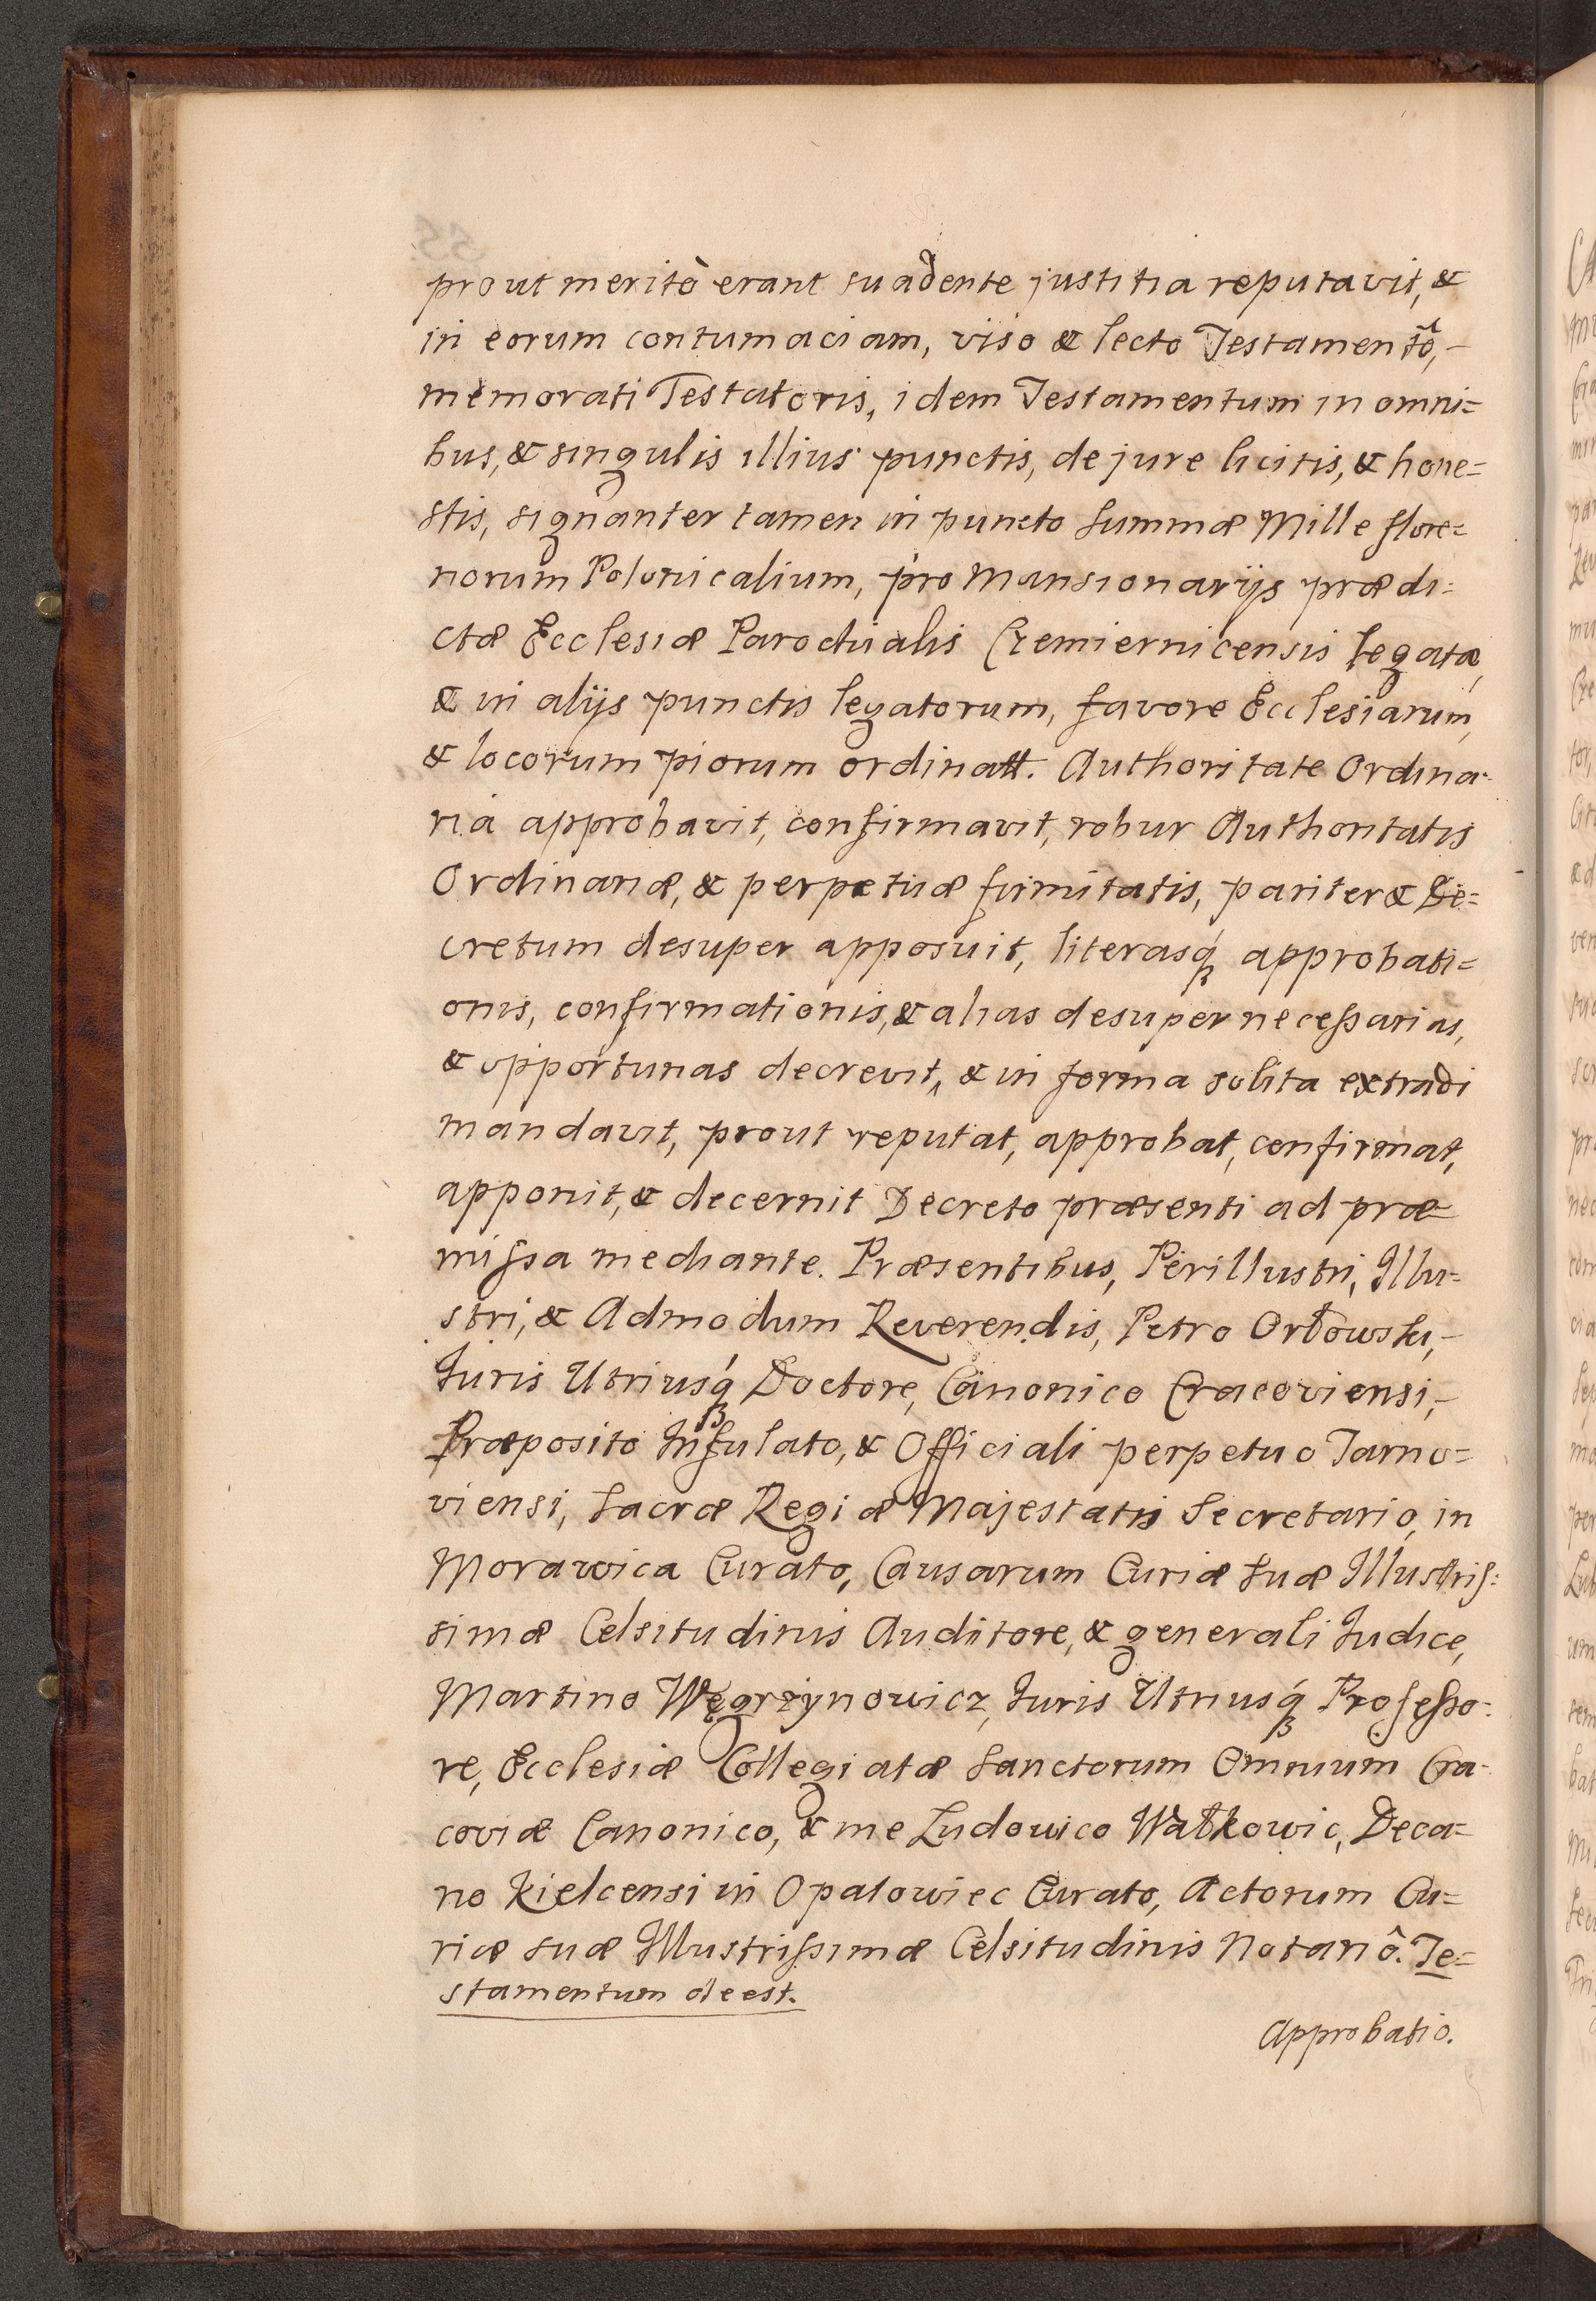 prout meritò erant suadente justitia reputavit, &
in eorum contumaciam, viso & lecto Testamentô,-
memorati Testatoris, idem Testamentum in omni=
bus, & singulis illius punctis, de jure licitis, & hone=
stis, signanter tamen in puncto Summæ Mille flore=
norum Polonicalium, pro Mansionarijs prædi=
ctæ Ecclesiæ Parochialis Czemiernicensis legatæ,
& in alijs punctis legatorum, favore Ecclesiarum,
& locorum piorum ordinatt. Authoritate Ordina-
riá approbavit, confirmavit, robur Authoritatis
Ordinariæ, & perpetuæ firmitatis, pariter & De=
cretum desuper apposuit, literasq́ꝫ approbati=
onis, confirmationis, & alias desuper neceſsarias,
& opportunas decrevit, & in forma solita extradi
mandavit, prout reputat, approbat, confirmat,
apponit, & decernit Decreto præsenti ad præ=
miſsa mediante. Præsentibus, Perillustri, Illu=
stri, & Admodum Reverendis, Petro Orłowski,-
Juris Utriusq́ꝫ Doctore, Canonico Cracoviensi,-
Præposito Infulato, & Officiali perpetuo Tarno=
viensi, Sacræ Regiæ Majestatis Secretario, in
Morawica Curato, Causarum Curiæ Suæ Illustriſ=
simæ Celsitudinis Auditore, & generali Judice,
Martino Węgrzynowicz, Juris Utriusq́ꝫ Profeſso-
re, Ecclesiæ Collegiatæ Sanctorum Omnium Cra-
coviæ Canonico, & me Ludowico Wałkowic, Deca=
no Kielcensi in Opatowiec Curato, Actorum Cu=
riæ Suæ Illustriſsimæ Celsitudinis Notariô. Te=
stamentum deest.
Approbatio.